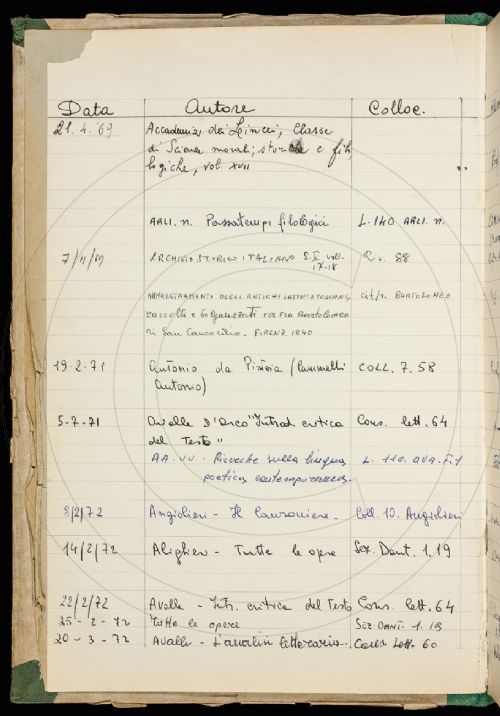 Data Autore Colloc.
21. 4. '69 Accademia dei Lincei, Classe
di Scienze morali, storiche e filo
logiche, vol. XVII
ARLI. n. Passatempi filologici L. 140 ARLI. n.
7/11/69 ARCHIVIO STORICO ITALIANO S. V voll. Riv. 88
17-18
AMMAESTRAMENTI DEGLI ANTICHI LATINI E TOSCANI, cit/r. BARTOLOMEO
raccolti e volgarizzati per fra Bartolomeo
di San Concordio. FIRENZE 1840
19-2-71 Antonio da Pistoia (Cammelli COLL. 7. 58
Antonio)
5-7-71 Avalle D'Arco "Introd. critica Cons. lett. 64
del testo"
AA.VV. - Ricerche sulla lingua L. 110. AVA. F. 1
poetica contemporanea.
8/2/72 Angiolieri - Il canzoniere. Coll. 10. Angiolieri
14/2/72 Alighieri - Tutte le opere Sez. Dant. 1.19
22/2/72 Avalle - Intr. critica del testo Cons. lett. 64
25-2-72 Tutte le opere SEZ. DANT. 1.19
20-3-72 Avalle - L'analisi letteraria. Cons. Lett. 60